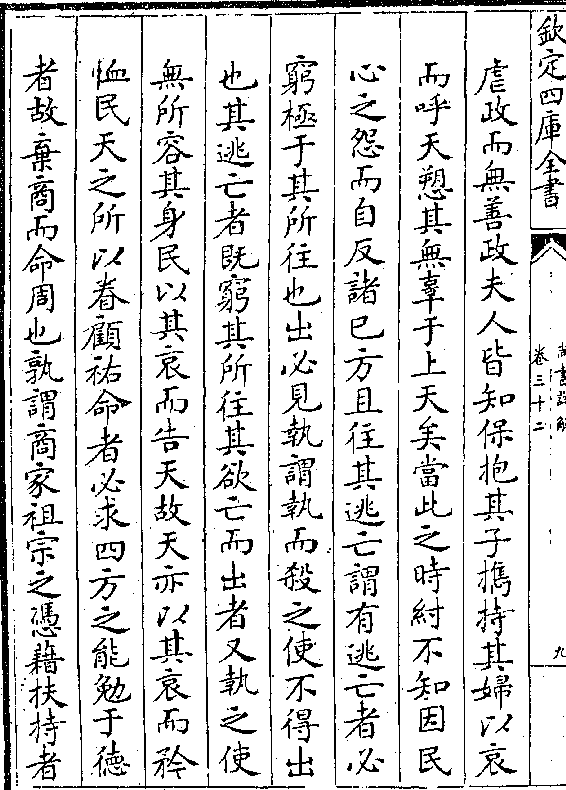 欽定四庫全書
尚書詳解
卷三十二
九
虐政而無善政夫人皆知保抱其子攜持其婦以哀
而呼天愬其無辜于上天矣當此之時紂不知因民
心之怨而自反諸己方且往其逃亡謂有逃亡者必
窮極于其所往也出必見執謂執而殺之使不得出
也其逃亡者既窮其所往其欲亡而出者又執之使
無所容其身民以其哀而告天故天亦以其哀而矜
恤民天之所以眷顧祐命者必求四方之能勉于德
者故棄商而命周也孰謂商家祖宗之憑藉扶持者